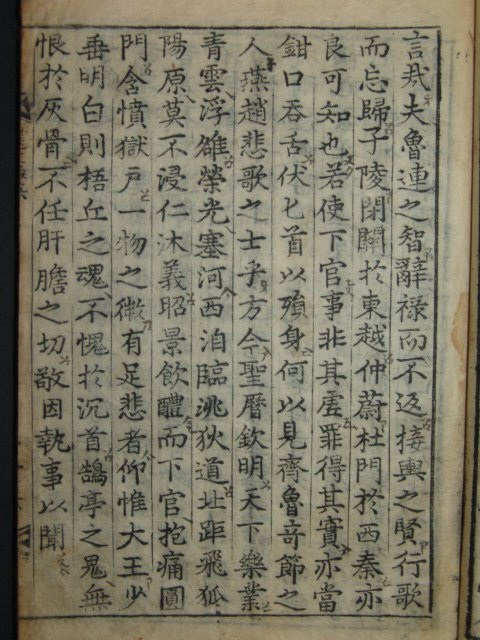 言哉夫魯連之智辭祿而不返接輿之賢行歌
而忘歸子陵閉關於東越仲蔚杜門於西秦亦
良可知也若使下官事非其虛罪得其實亦當
鉗口吞舌伏匕首以殞身何以見齊魯竒節之
人燕趙悲歌之士乎方今聖曆欽明天下樂業
青雲浮雒榮光塞河西洎臨洮狄道北距飛狐
陽原莫不浸仁沐義昭景飲醴而下官抱痛圓
門含憤獄戶一物之微有足悲者仰惟大王少
垂明白則梧丘之魂不愧於沉首鵠亭之鬼無
恨於灰骨不任肝膽之切敬因執事以聞